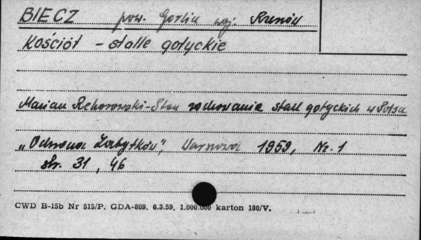 BIECZ pow. Gorlice woj. Rzeszów
Kościół - stalle gotyckie
Marian Rehorowski - Stan zachowania stall gotyckich w Polsce
"Ochrona Zabytków", Warszawa 1959, Nr. 1
str. 31, 46
CWD B-15b Nr 515/P. GDA-809. 6.3.59, 1.000.000 karton 180/V.